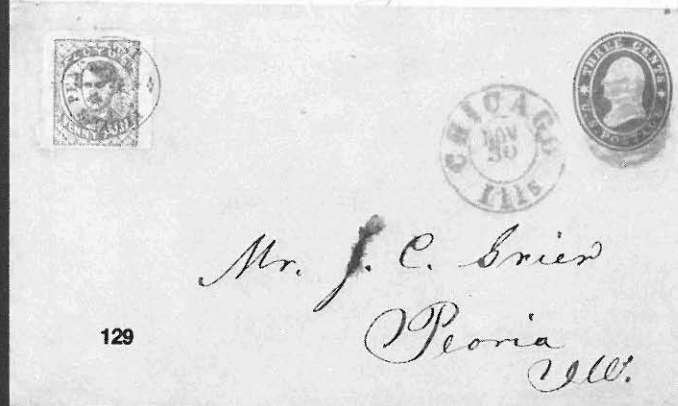 THREE CENTS
CHICAGO
NOV
30
Ills
Mr. J. C. Grier
Peoria
Ill.
129